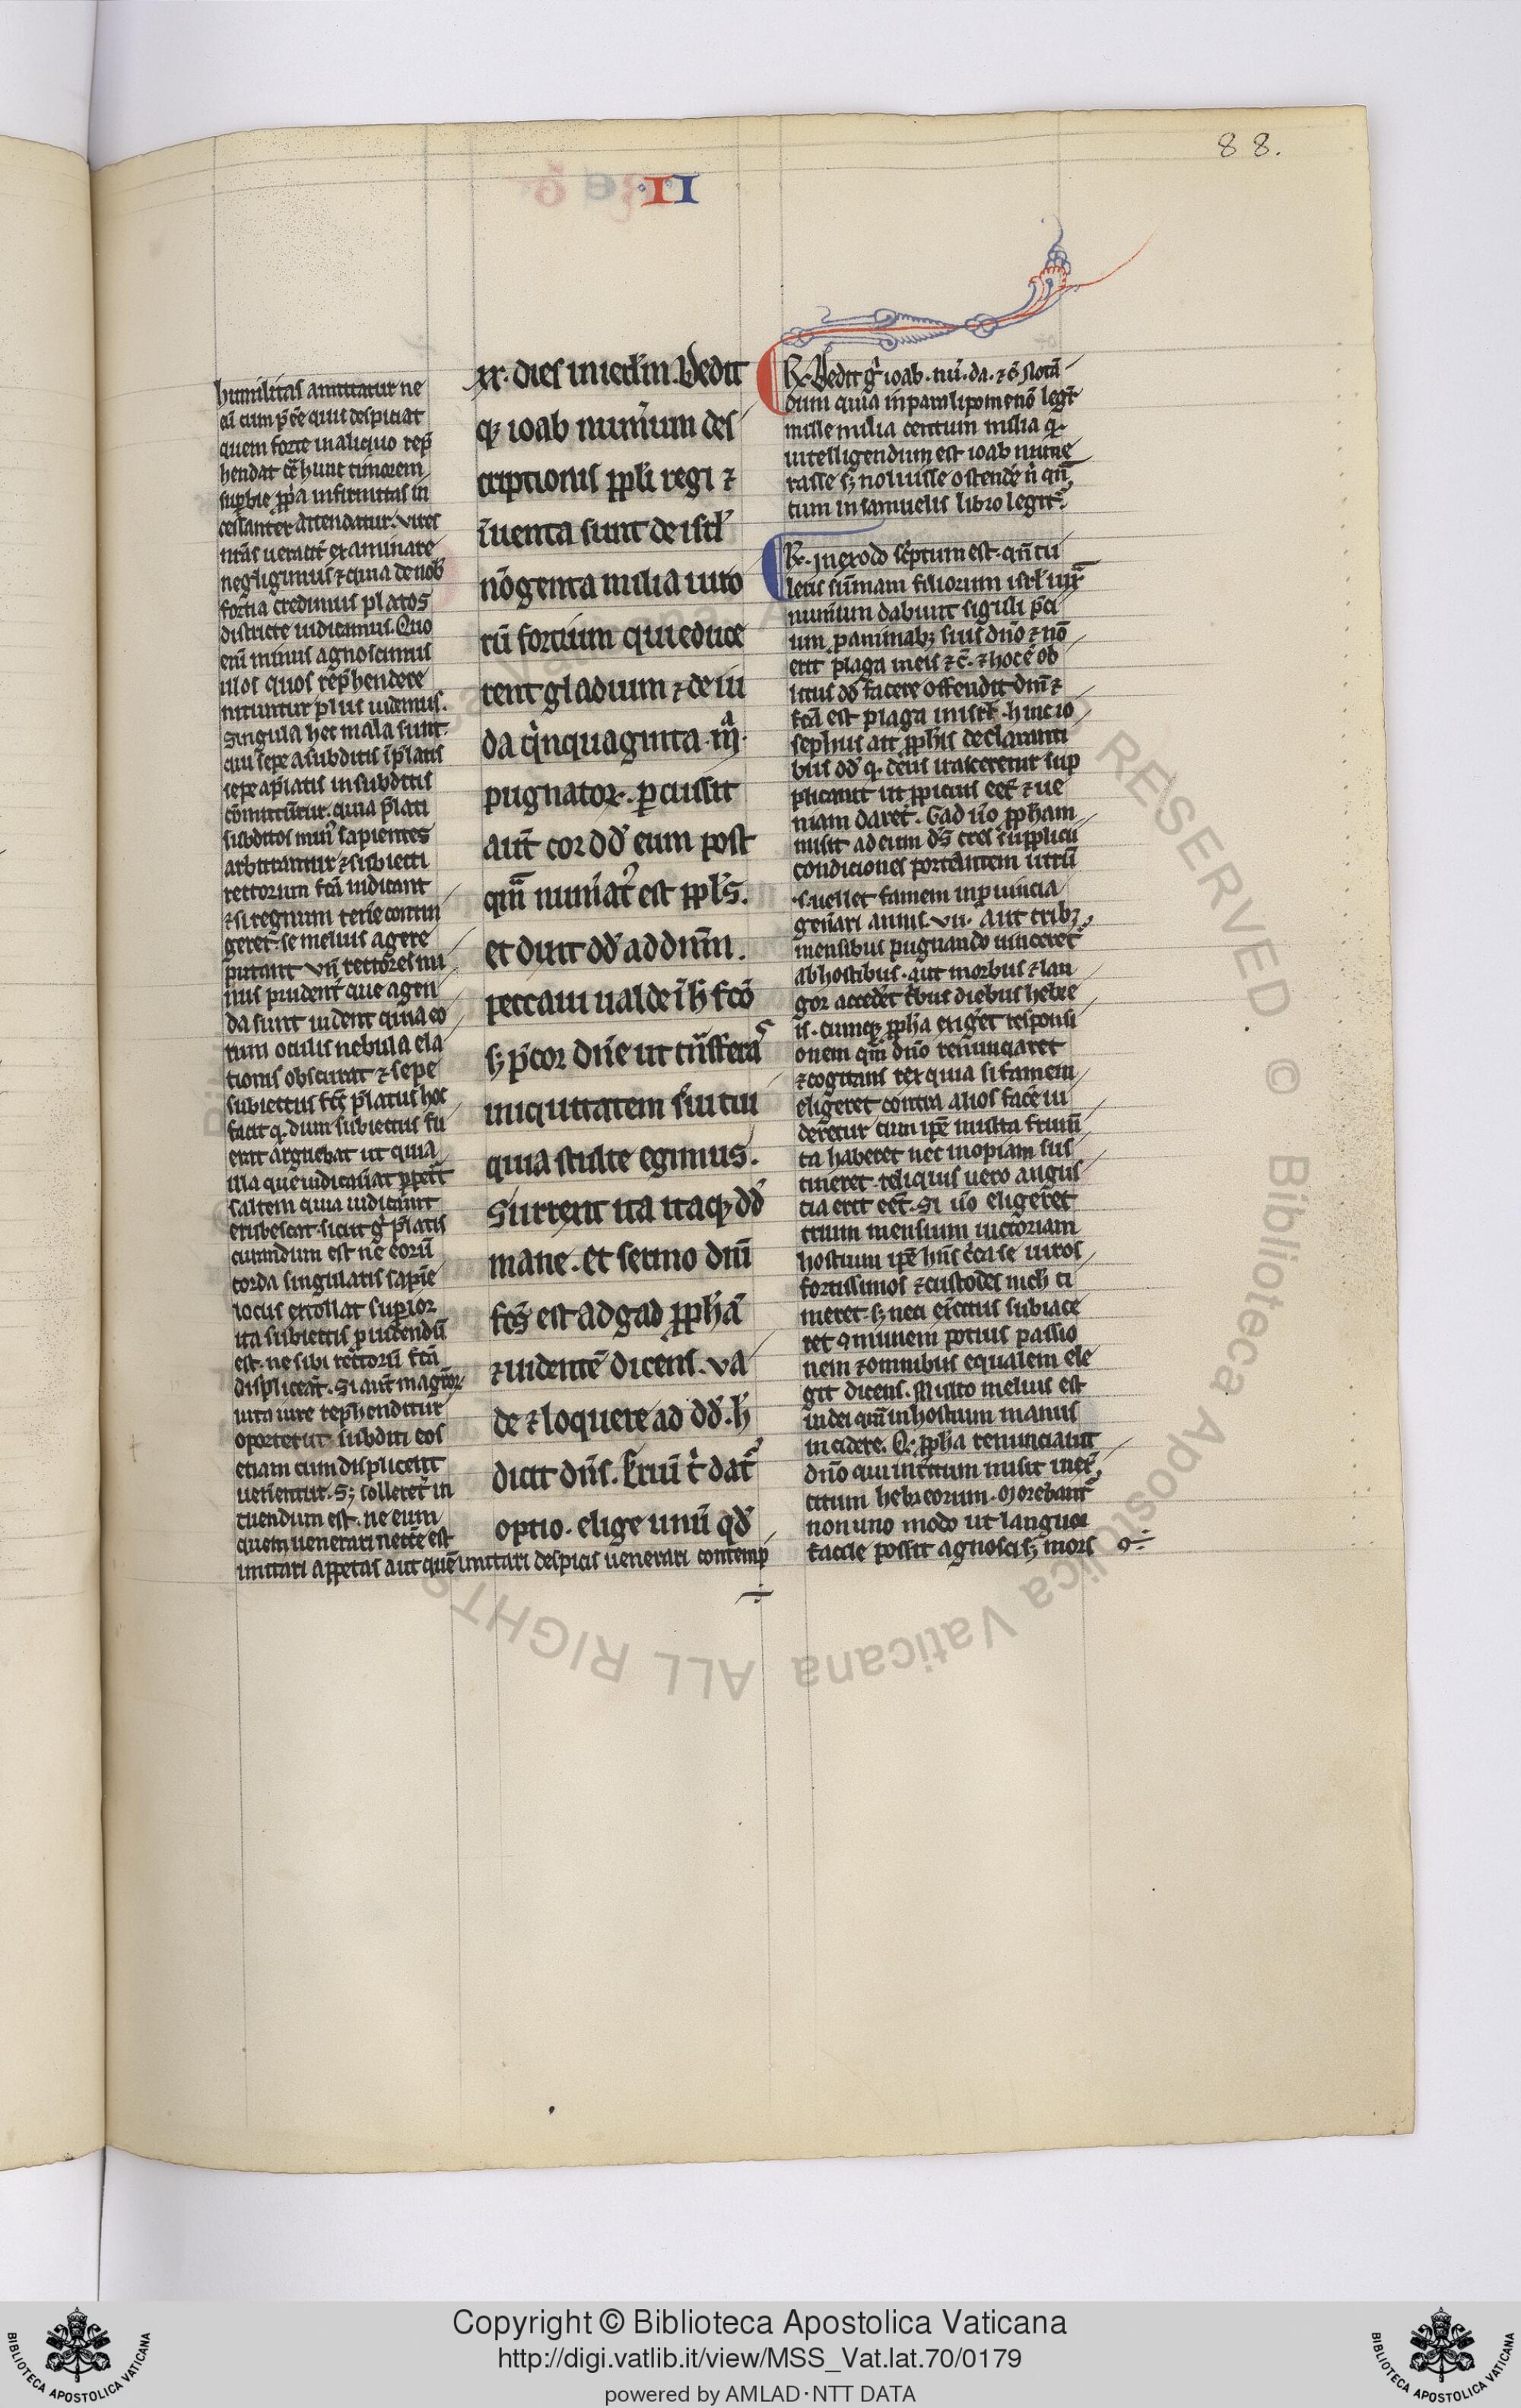 88.
II
humilitas amittatur ne
eū cum p̄ē e qui despiciat
quem forte in aliquo rep̄
hendat cū hunc timorem
suꝑbie ꝓp̄a infirmitas in
cessanter attendatur. vires
nr̄as ueracit̄ examinare
negligimus ⁊ quia de nob̄
fortia credimus p̄latos
districte iudicamus. Quo
eni minus agnoscimus
illos quos rep̄hendere
nituntur plus uidemus.
Singula hec mala sunt.
cui sepe a subditis i p̄latis
sepe a p̄latis in subditis
cōmittūtur. quia p̄lati
subditos min̄ sapientes
arbitrantur ⁊ subiecti
rectorum fc̄a iudicant
⁊ si regnum ten̄e contin
geret se melius agere
putant vn̄ rectores mi
nus prudent̄ que agen
da sunt uident quia eo
rum oculis nebula ela
tionis obscurat ⁊ sepe
subiectus fc̄s p̄latus hoc
facit q dum subiectus fu
erit arguebat ut quia
illa que iudicauat ꝑpet̄
saltem quia iudicauit
erubescat. sicut g̊ p̄latis
curandum est ne eorū
corda singularis sapīe
locus extollat suꝑior
ita subiectis ꝓuidendū
est. ne sibi rectorū fc̄a
displiceat. Si aut̄ magrōr
uita iure rep̄henditur
oportet ut subditi eos
etiam cum displicent
uenentur. Sꝫ sollert̄ in
tuendum est. ne eum
quem uenerari necc̄e est
imitari appetas aut quē imitari despicis uenerari contemp
xx. dies in ierl̄m. Dedit
qꝫ ioab num̄um des
criptionis ppl̄i regi ⁊
īuenta sunt de isrl̄
nōgenta milia uiro
rū fortium qui educe
rent gladium ⁊ de iu
da q̊nquaginta .m̄a.
pugnator. ꝑcussit
aut̄ cor dd̄ eum post
qm̄ num̄at̄ est ppl̄s.
et dixit dd̄ ad dn̄m.
peccaui ualde ī h̄ fc̄o
sꝫ p̄cor dn̄e ut tn̄sferas
iniquitatem s̄ui tui
quia stulte egimus.
Surrexit ita itaqꝫ dd̄
mane. et sermo dn̄i
fc̄s est ad gad ꝓph̄ā
⁊ uidentē dicens. va
de ⁊ loquere ad dd̄. h̄
dicit dn̄s. triū t̄ dat̄
optio. elige unū qd̄
Dedit g̊ ioab. nū. da. ⁊ c̄ Notā
dum quia in paralipomenō legit̄
mille milia centum milia q.
intelligendum est ioab nume
rasse sꝫ noluisse ostendē n̄ qn̄
tum in samuelis libro legit̄
In exodo sc̄ptum est. qn̄ tu
leris sūmam filiorum isrl̄ iux̄
num̄um dabunt sigl̄i p̄ci
um ꝑ animabꝫ suis dn̄o ⁊ nō
erit plaga in eis ⁊ c̄. ⁊ hoc ē ob
litus dd̄ facere offendit dn̄m ⁊
fc̄a est plaga in isrl̄. hinc io
sephus ait ꝓph̄is declaranti
bus dd̄ q. deus irasceretur sup
plicauit ut ꝓpicius eēt ⁊ ue
niam daret. Gad u̇o ꝓpham
misit ad eum ds̄ tres supplicii
condiciones portantem utrū
.s. uellet famem in ꝓuincia
gen̄ari annis .vii. aut tribꝫ
mensibus pugnando uinceret̄
ab hostibus. aut morbus ⁊ lan
gor accedēt t̄bus diebus hebre
is. cumqꝫ ꝓph̄a exig̊et responsi
onem qm̄ dn̄o renunciaret
⁊ cogitans rex quia si famem
eligeret contra alios face ui
deretur cum ipē multa frum̄
ta haberet nec inopiam sus
tineret. reliquis uero angus
tia erit eēt. Si u̇o eligeret
trium mensium uictoriam
hostium ipē hn̄s c̄ca se uiros
fortissimos ⁊ custodes nich̄ ti
meret. sꝫ nec exc̄itus subiace
ret ꝯmunem potius passio
nem ⁊ omnibus equalem ele
git dicens. Multo melius est
in dei qm̄ in hostium manus
incidere. Q ꝓph̄a renunciauit
dn̄o qui inc̄itum misit in ex̄
citum hebreorum. Morebant̄
non uno modo ut languor
facile possit agnosci sꝫ mors
Copyright © Biblioteca Apostolica Vaticana
http://digi.vatlib.it/view/MSS_Vat.lat.70/0179
powered by AMLAD·NTT DATA